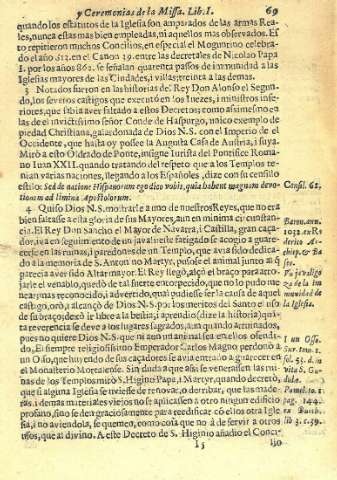 y Ceremonias de la Missa. Lib. I. 69
quando los estatutos de la Iglesia son amparados de las armas Rea-
les, nunca estas mas bien empleadas, ni aquellos mas observados. Es
to repitieron muchos Concilios, en especial el Moguntino celebra-
do el año 812. en el Canon 29. entre las decretales de Nicolao Papa
I. por los años 862. se señalan quarenta passos de inmunidad a las
Iglesias mayores de las Ciudades, i villas; treinta a las demas.
3 Notados fueron en las historias del Rey Don Alonso el Segun-
do, los severos castigos que executó en los Juezes, i ministros infe-
riores, que sabia aver faltado a estos Decretos; como assimesmo en
las de el invictissimo señor Conde de Haspurgo, unico exemplo de
piedad Christiana, galardonada de Dios N. S. con el Imperio de el
Occidente, que hasta oy possee la Augusta Casa de Austria, i suya.
Miró a esto Oldrado de Ponte, insigne Iurista del Pontifice Roma-
no Iuan XXII. quando tratando del respeto que a los Templos te-
nian varias naciones, llegando a los Españoles, dize con su censillo
estilo: Sed de natione Hispanorum ego dico vobis, quia habent magnam devo-
tionem ad limina Apostolorum.
Consil. 62.
4 Quiso Dios N. S. mostrarle a uno de nuestros Reyes, que no era
bien faltasse a esta gloria de sus Mayores, aun en minima circunstan-
cia. El Rey Don Sancho el Mayor de Navarra, i Castilla, gran caça-
dor, iva en seguimiento de un javali: este fatigado se acogio a guare-
cerse en las ruinas, i paredones de un Templo, que avia sido dedica-
do a la memoria de S. Antonin Martyr, puso se el animal junto al q̃
parecia aver sido Altar mayor. El Rey llegó, alçó el braço para arro-
jarle el venablo, quedó de tal suerte entorpecido, que no lo pudo me
near; mas reconocido, i advertido, qual pudiesse ser la causa de aquel
castigo, oró, i alcançó de Dios N. S. por los meritos del Santo el uso
de su braço: dexó ir libre a la bestia; i aprendio (dize la historia) quã
ta reverencia se deve a los lugares sagrados, aun quando arruinados,
pues no quiere Dios N. S. que ni aun un animal sea en ellos ofendi-
do. El siempre religiosissimo Emperador Carlos Magno perdonó a
un Osso, que huyendo de sus caçadores se avia entrado a guarecer en
el Monasterio Mortalense. Sin duda aque assi se veneràssen las mis-
mas de los Templos miró S. Higino Papa, i Martyr, quando decretó,
que si alguna Iglesia se uviesse de renovar, o derribar, que las made-
ras, i demas materiales viejos no se aplicassen a otro ningun edificio
profano, sino se den graciosamente para reedificar cõ ellos otra Igle
sia, i no aviendola, se quemen, como cosa que no à de servir a otros
usos, que al divino. A este Decreto de S. Higinio añadio el Conci-
I 3 lio
Baron. ann.
la Iglesia.
1 un Osso.
vita S. Gu-
dula.
pag. 144.